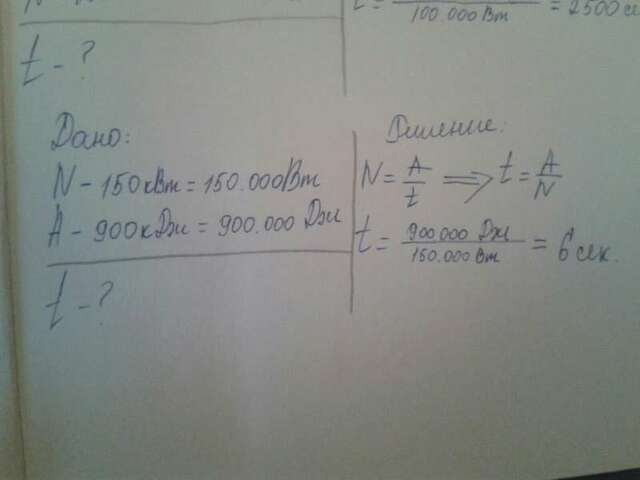 100.000 Вт = 2500 се
t - ?
Дано:
N - 150 кВт = 150.000 Вт
A - 900 кДж = 900.000 Дж
t - ?
Решение:
N = A/t ⟹ t = A/N
t = 900.000 Дж / 150.000 Вт = 6 сек.